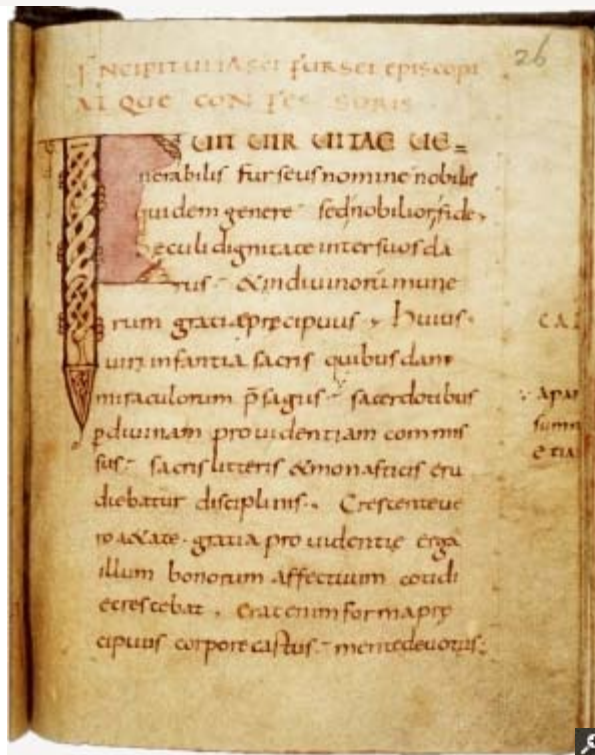 26
INCIPIT UITA SCI FURSEI EPISCOPI
ATQUE CONFESSORIS
FUIT UIR UITAE UE=
nerabilis furseus nomine nobilis
quidem genere sed nobilior fide,
Seculi dignitate inter suos cla
rus & in diuinorū mune
rum gratia precipuus, Huius
uiri infantia sacris quibusdam
miraculorum p̄sagus sacerdotibus
ꝑ diuinam prouidentiam commis
sus sacris litteris & monasticis eru
diebatur disciplinis. Crescente ue
ro &ate gratia prouidentię erga
illum bonorum affectuum cotidi
e crescebat, erat enim forma prę
cipuus corpore castus mente deuotus;